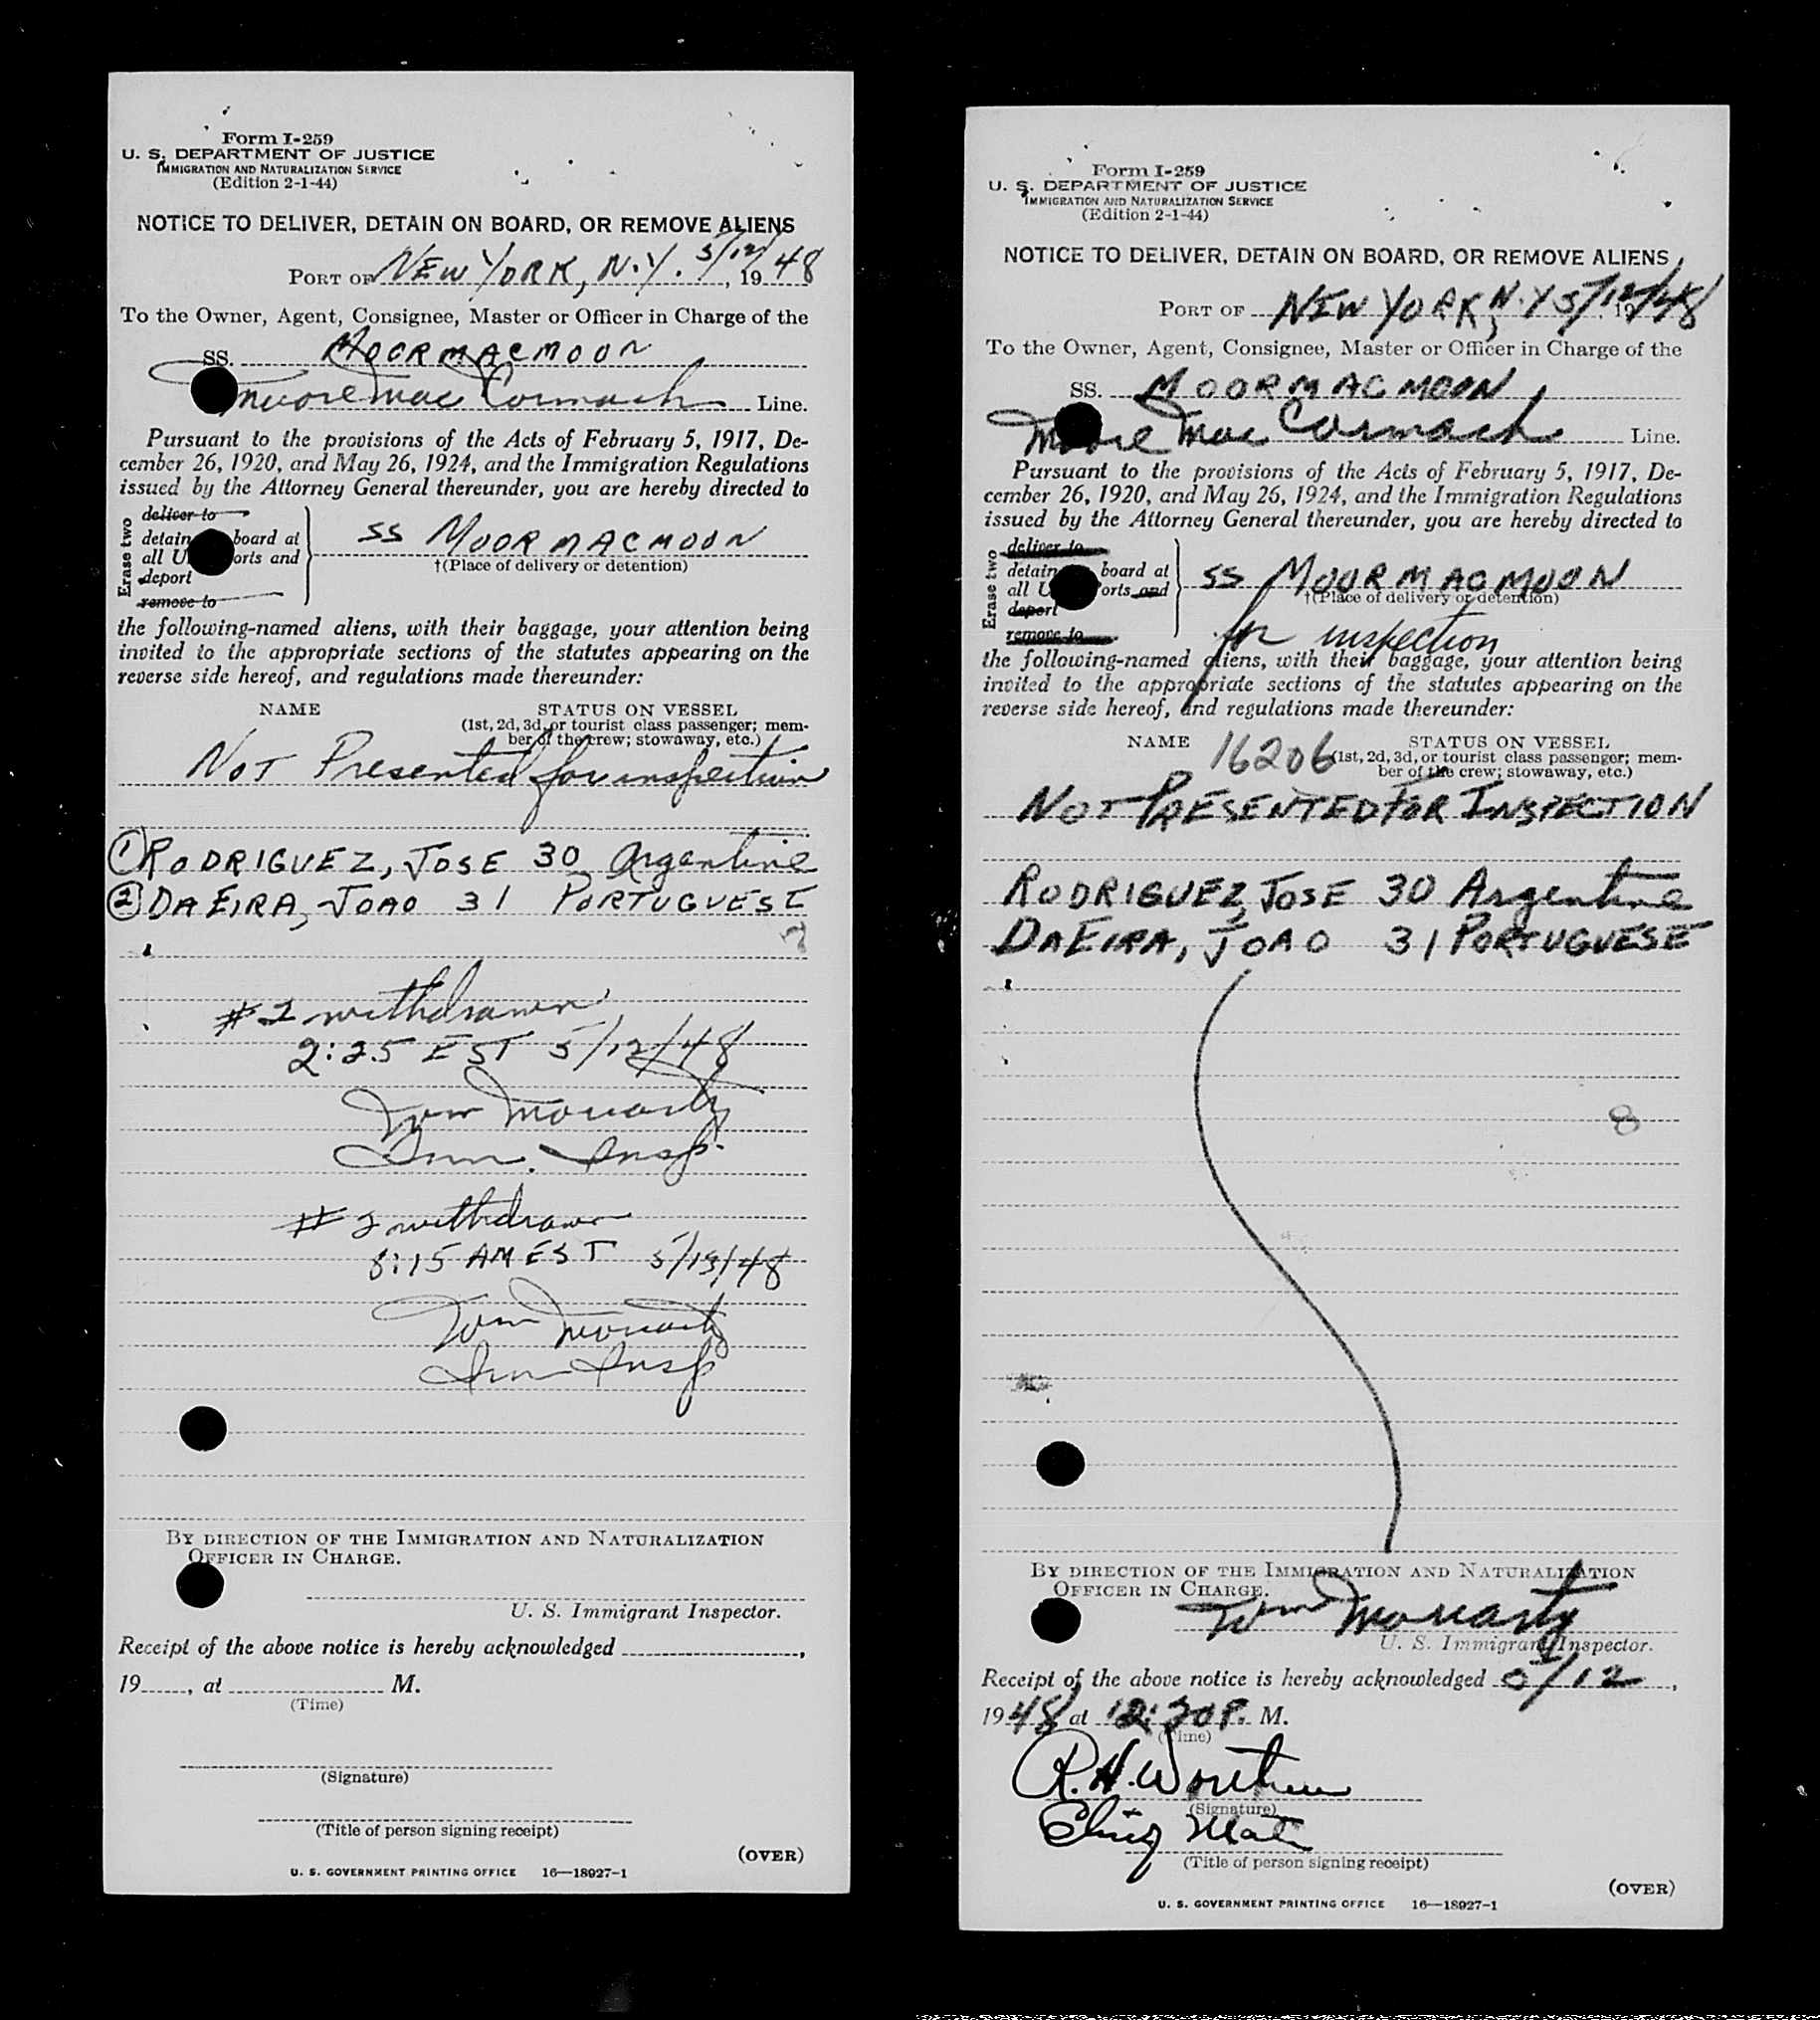 Form I-259
U. S. DEPARTMENT OF JUSTICE
IMMIGRATION AND NATURALIZATION SERVICE
(Edition 2-1-44)
NOTICE TO DELIVER, DETAIN ON BOARD, OR REMOVE ALIENS
PORT OF NEW YORK, N.Y. 5/12/, 1948
To the Owner, Agent, Consignee, Master or Officer in Charge of the
SS. MOORMACMOON
Moore Mac Cormack Line.
Pursuant to the provisions of the Acts of February 5, 1917, De-
cember 26, 1920, and May 26, 1924, and the Immigration Regulations
issued by the Attorney General thereunder, you are hereby directed to
Erase two
deliver to
detain board at
all U orts and
deport
remove to
SS MOORMACMOON
†(Place of delivery or detention)
the following-named aliens, with their baggage, your attention being
invited to the appropriate sections of the statutes appearing on the
reverse side hereof, and regulations made thereunder:
NAME STATUS ON VESSEL
(1st, 2d, 3d, or tourist class passenger; mem-
ber of the crew; stowaway, etc.)
NOT Presented for inspection
① RODRIGUEZ, JOSE 30 Argentine
② DAEIRA, JOAO 31 PORTUGUESE
withdrawn
2:25 EST 5/12/48
Wm Moriarty
Imm. Insp.
# 2 withdrawn
8:15 AM EST 5/13/48
Wm Moriarty
Imm Insp
BY DIRECTION OF THE IMMIGRATION AND NATURALIZATION
OFFICER IN CHARGE.
U. S. Immigrant Inspector.
Receipt of the above notice is hereby acknowledged ,
19 , at M.
(Time)
(Signature)
(Title of person signing receipt)
(OVER)
U. S. GOVERNMENT PRINTING OFFICE 16—18927-1
Form I-259
U. S. DEPARTMENT OF JUSTICE
IMMIGRATION AND NATURALIZATION SERVICE
(Edition 2-1-44)
NOTICE TO DELIVER, DETAIN ON BOARD, OR REMOVE ALIENS
PORT OF NEW YORK, N.Y 5/12/48
To the Owner, Agent, Consignee, Master or Officer in Charge of the
SS. MOORMACMOON
Moore Mac Cormack Line.
Pursuant to the provisions of the Acts of February 5, 1917, De-
cember 26, 1920, and May 26, 1924, and the Immigration Regulations
issued by the Attorney General thereunder, you are hereby directed to
Erase two
deliver to
detain board at
all U orts and
deport
remove to
SS MOORMACMOON
†(Place of delivery or detention)
for inspection
the following-named aliens, with their baggage, your attention being
invited to the appropriate sections of the statutes appearing on the
reverse side hereof, and regulations made thereunder:
NAME 16206 STATUS ON VESSEL
(1st, 2d, 3d, or tourist class passenger; mem-
ber of the crew; stowaway, etc.)
NOT PRESENTED FOR INSPECTION
RODRIGUEZ, JOSE 30 Argentine
DAEIRA, JOAO 31 PORTUGUESE
8
BY DIRECTION OF THE IMMIGRATION AND NATURALIZATION
OFFICER IN CHARGE.
Wm Moriarty
U. S. Immigrant Inspector.
Receipt of the above notice is hereby acknowledged 5/12,
1948 at 12:30 P. M.
(Time)
R. H.
(Signature)
Chief Mate
(Title of person signing receipt)
(OVER)
U. S. GOVERNMENT PRINTING OFFICE 16—18927-1